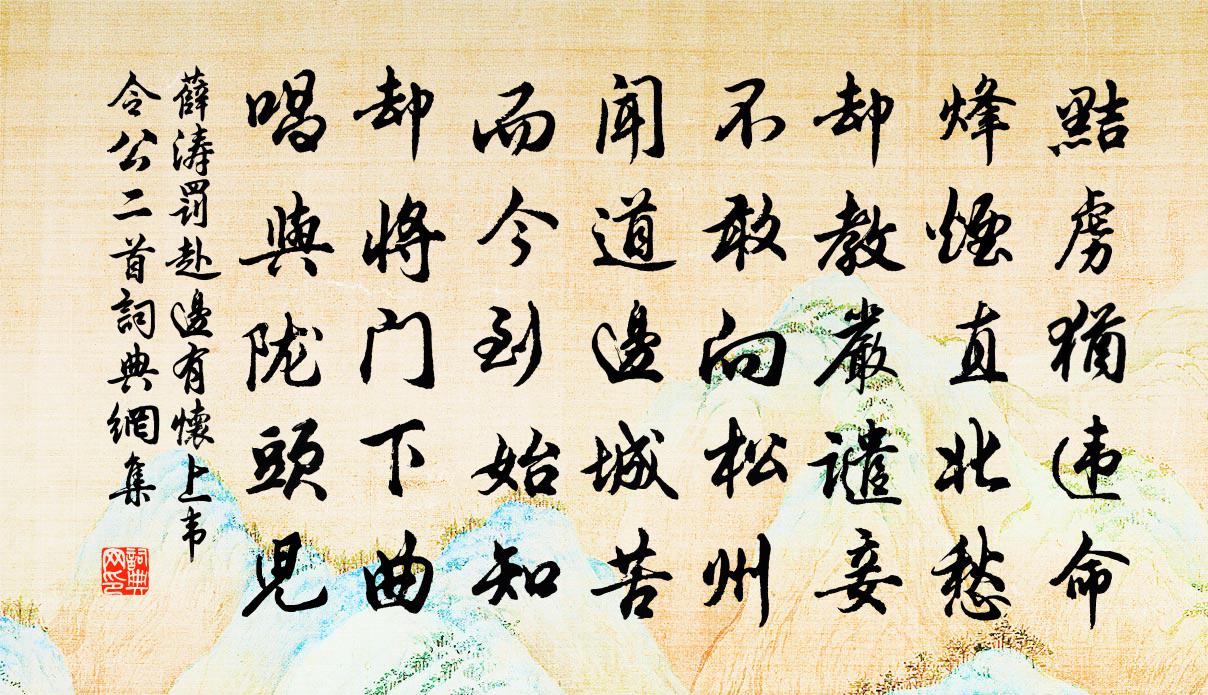 黠虏猶违命
烽煙直北愁
却教嚴譴妾
不敢向松州
闻道邊城苦
而今到始知
却將门下曲
唱與陇頭児
薛涛罰赴邊有懷上韦
令公二首詞典網集
詞典网印